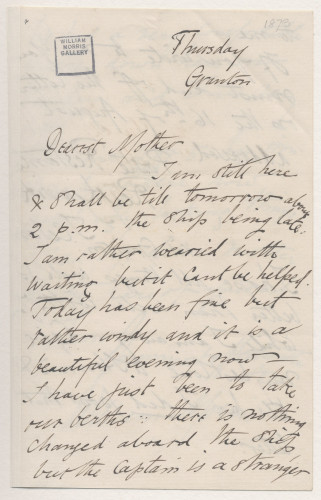 1873
WILLIAM
MORRIS
GALLERY
Thursday
Granton
Dearest Mother
I am still here
& shall be till tomorrow about
2 p.m. the ship being late:
I am rather wearied with
waiting but it cant be helped.
Today has been fine but
rather windy and it is a
beautiful evening now
I have just been to take
our berths: there is nothing
changed aboard the ship
but the Captain is a stranger